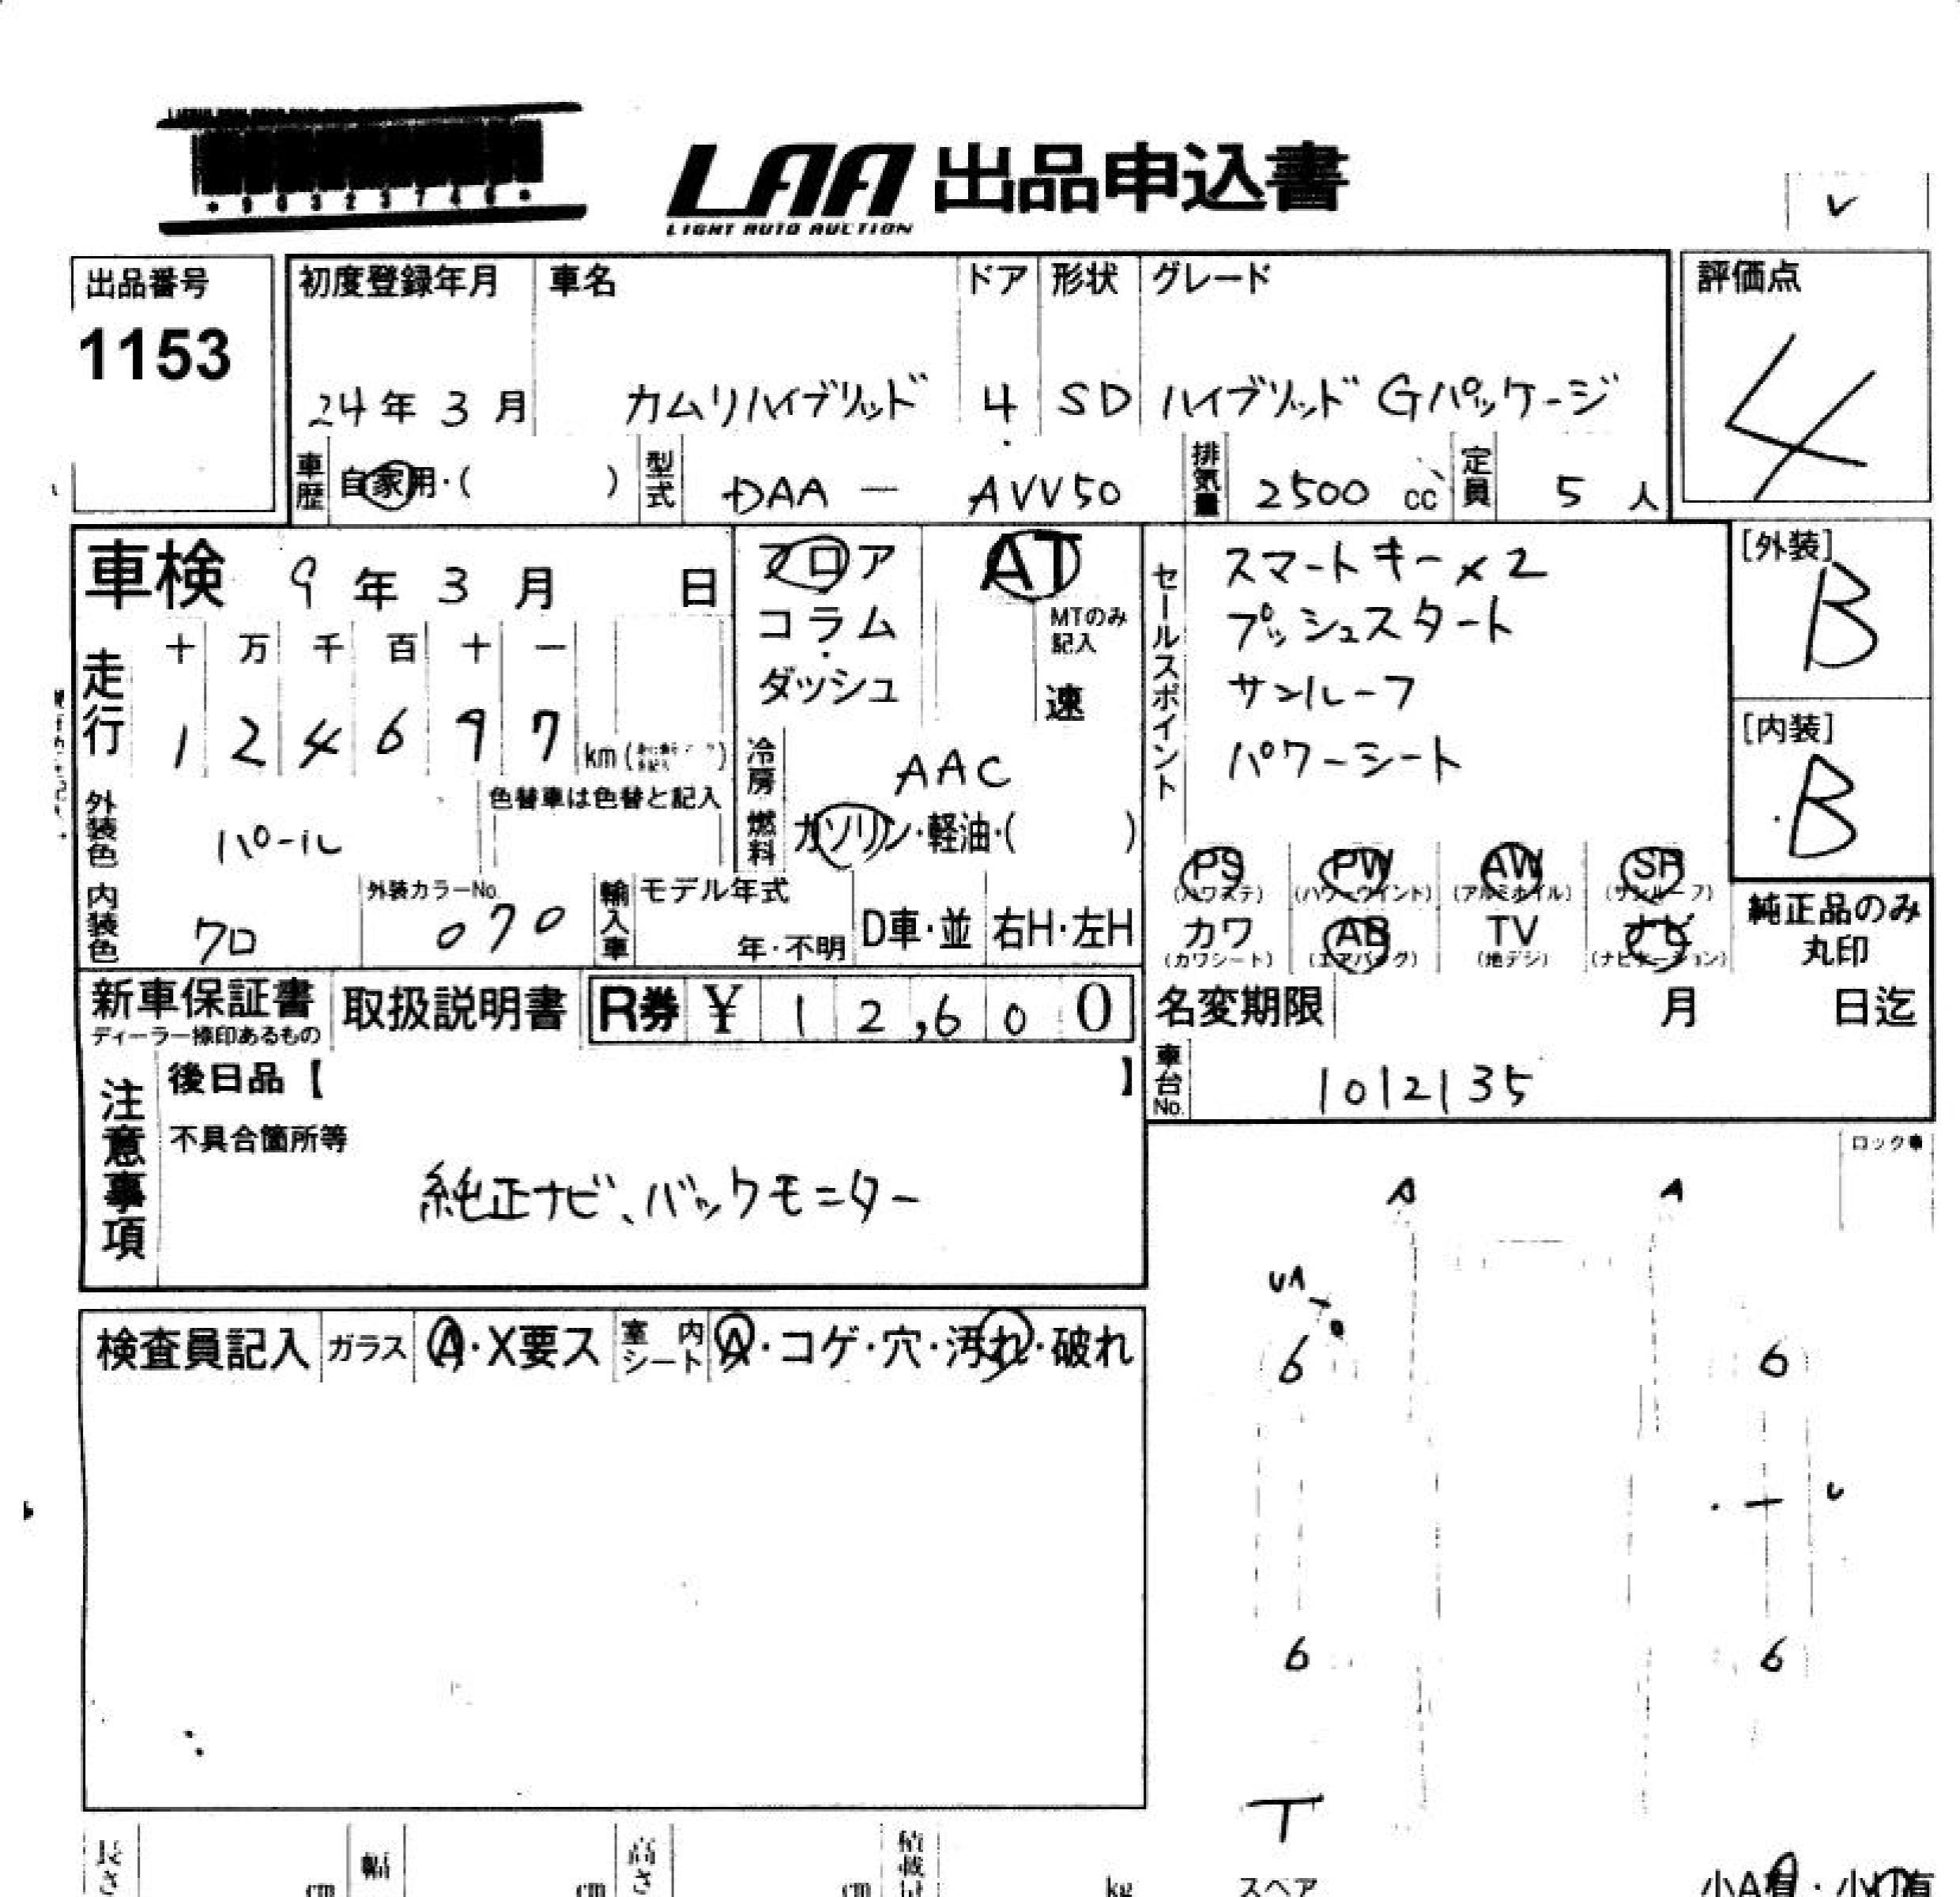 LAA 出品申込書
LIGHT AUTO AUCTION
出品番号
1153
初度登録年月 車名 ドア 形状 グレード
24年3月 カムリハイブリッド 4 SD ハイブリッド Gパッケージ
評価点
4
車歴 自家用・( ) 型式 DAA — AVV50 排気量 2500 cc 定員 5人
車検 9年3月 日
フロア
コラム
ダッシュ
AT
MTのみ
記入
速
セールスポイント
スマートキー×2
プッシュスタート
サンルーフ
パワーシート
[外装]
B
[内装]
B
走行
十 万 千 百 十 一
1 2 4 6 9 7 km
冷房 AAC
燃料 ガソリン・軽油・( )
外装色 パール
色替車は色替と記入
PS PW AW SR
(パワステ) (パワーウインド) (アルミホイル) (サンルーフ)
カワ AB TV ナビ
(カワシート) (エアバッグ) (地デジ) (ナビゲーション)
純正品のみ
丸印
内装色 クロ
外装カラーNo.
070
輸入車 モデル年式
年・不明 D車・並 右H・左H
新車保証書
ディーラー捺印あるもの
取扱説明書 R券 ¥ 12,600
名変期限 月 日迄
車台No. 1012135
注意事項
後日品【 】
不具合箇所等
純正ナビ、バックモニター
ロック車
A A
UA
6 6
U
6 6
検査員記入 ガラス A・X要ス 室内シート A・コゲ・穴・汚れ・破れ
T
スペア
長さ cm 幅 cm 高さ cm kg